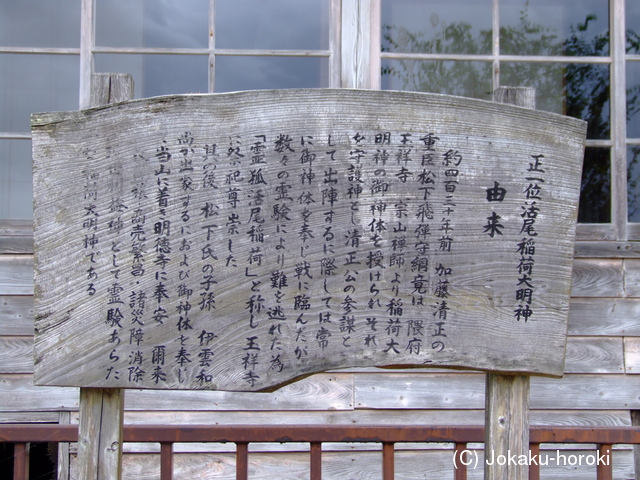 正一位活尾稲荷大明神
由来
約四百三十年前 加藤清正の
重臣松下飛弾守綱寛は 隈府
玉祥寺 一宗山禅師より稲荷大
明神の御神体を授けられ それ
を守護神とし清正公の参謀と
して出陣するに際しては常
に御神体を奉じ戦に臨んだが
数々の霊験により難を逃れた為
「霊狐活尾稲荷」と称し玉祥寺
に祭祀尊崇した
其の後 松下氏の子孫 伊雲和
尚が出家するにおよび御神体を奉じ
当山に着き明徳寺に奉安 爾来
商売繁昌・諸災障消除
として霊験あらた
大明神である
(C) Jokaku-horoki